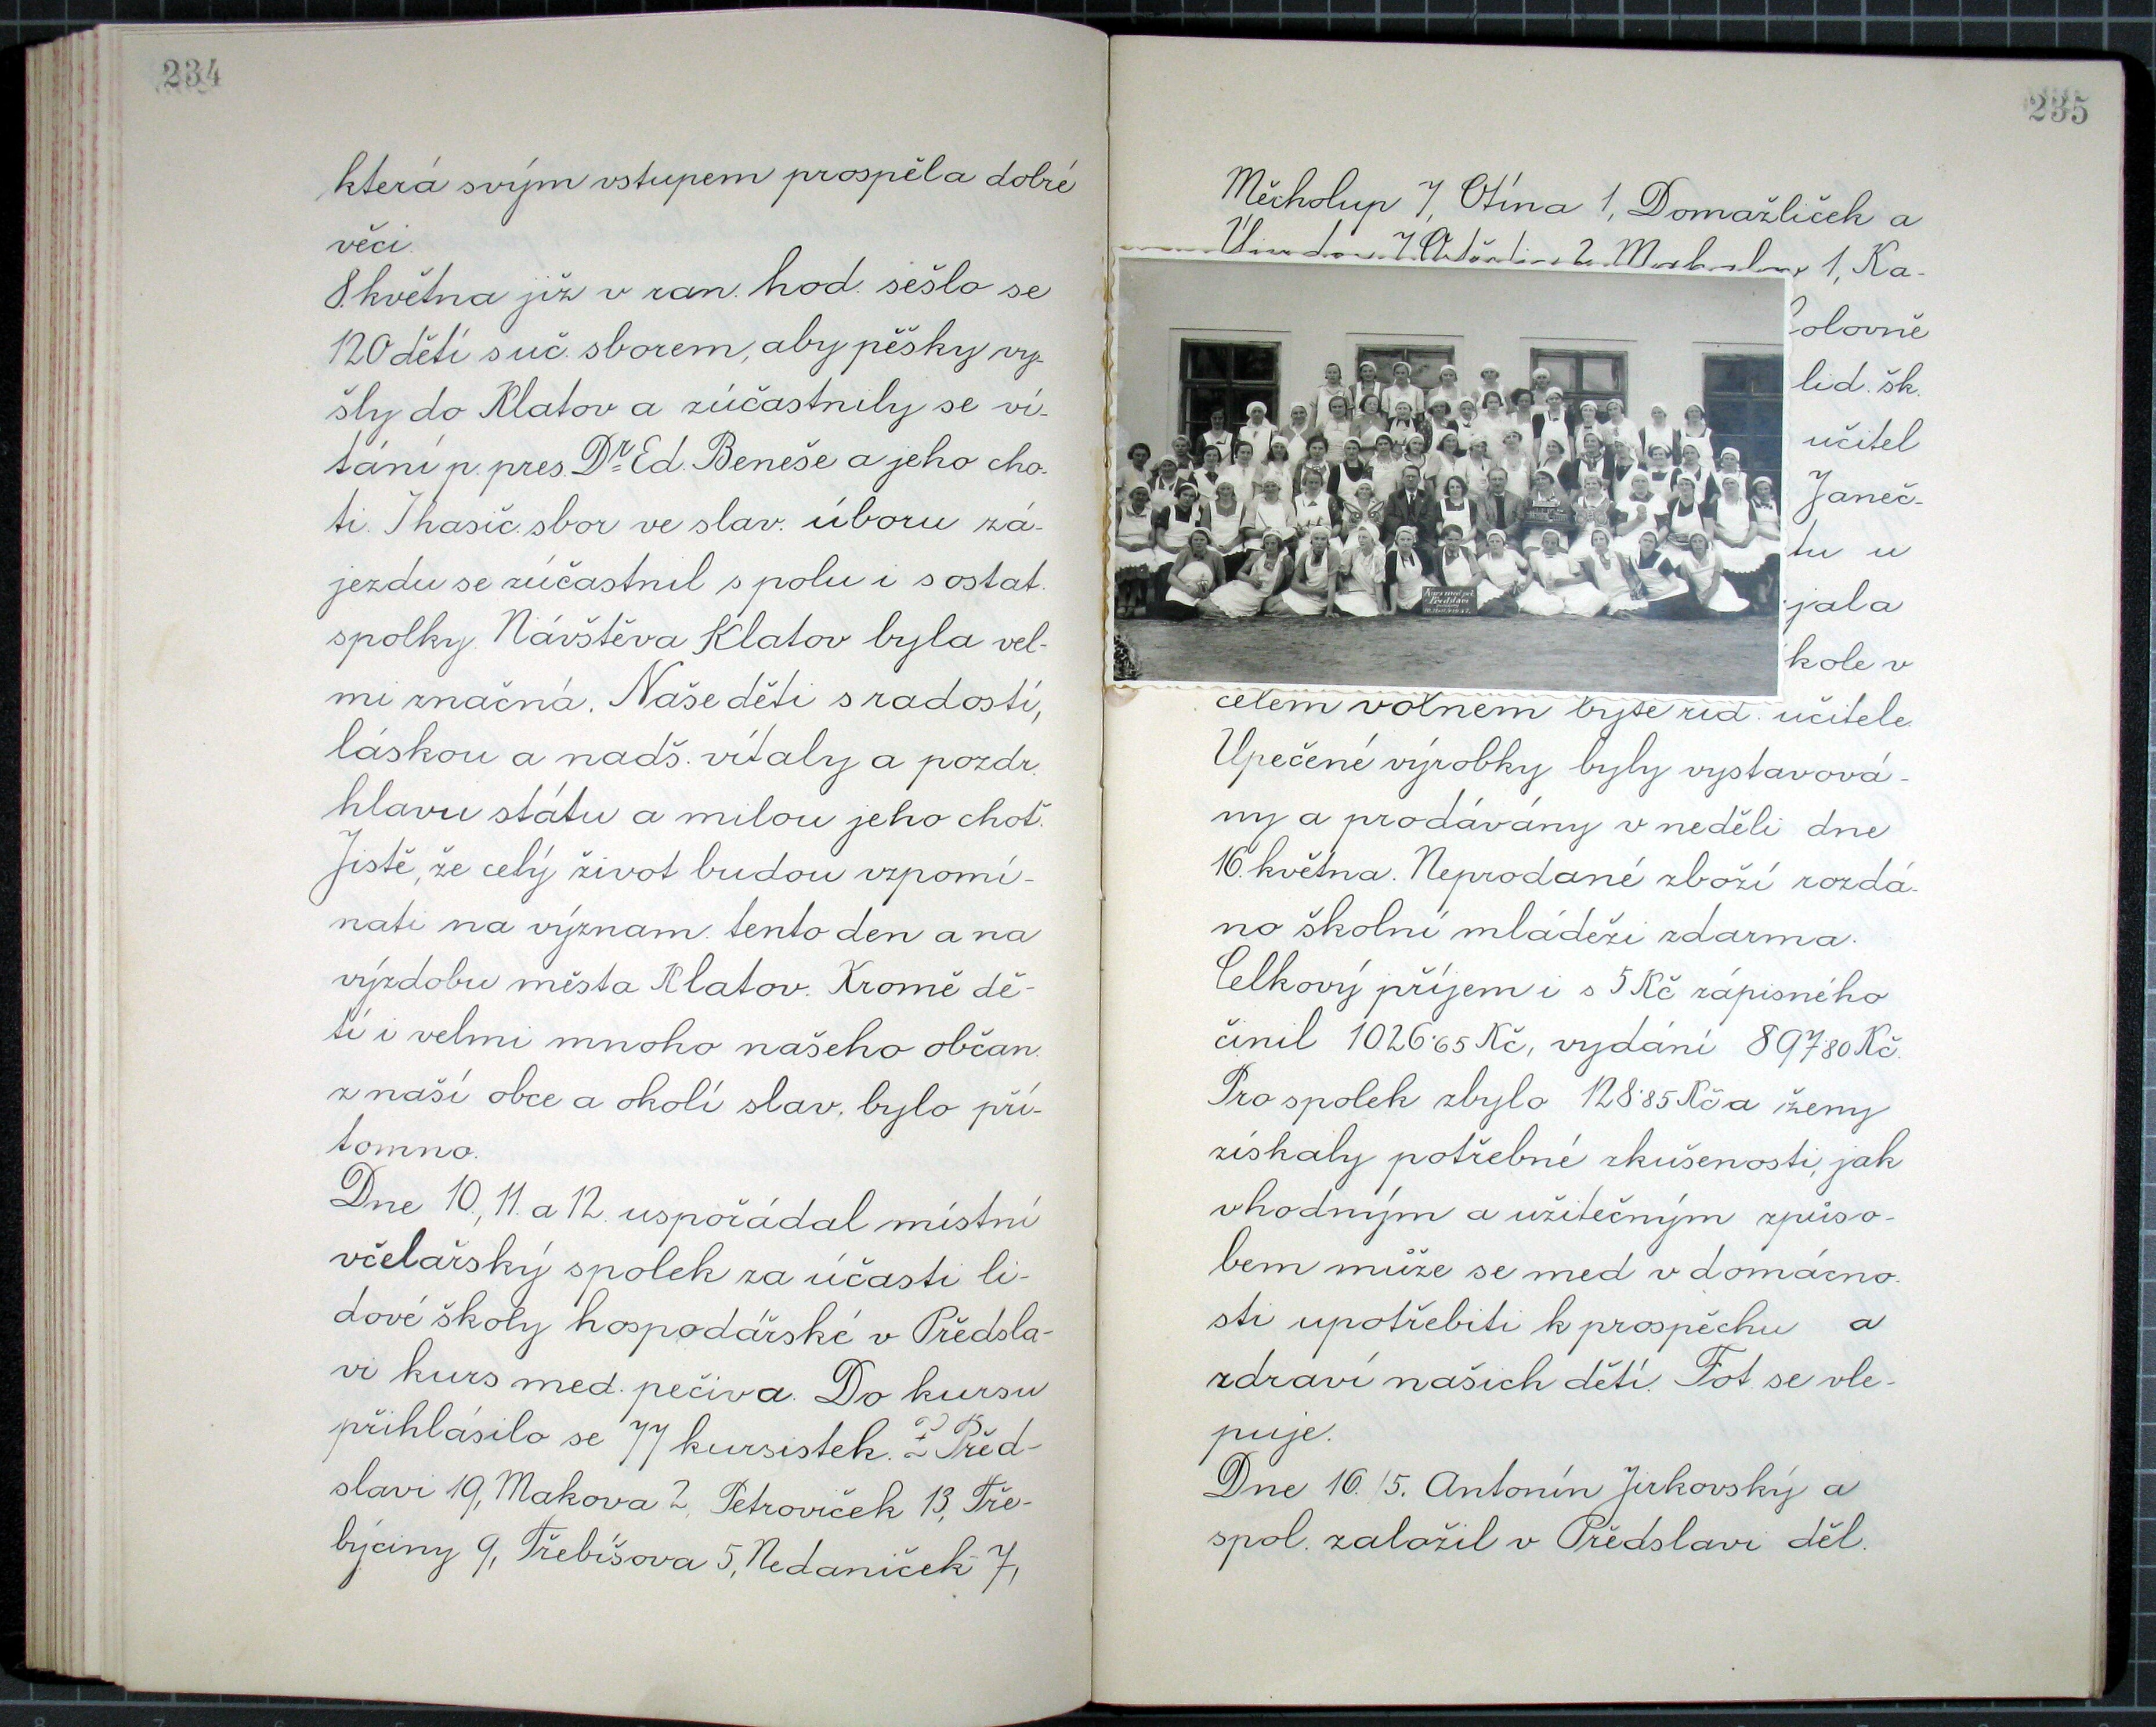 234
která svým vstupem prospěla dobré
věci.
8. května již v ran. hod. sešlo se
120 dětí s uč. sborem, aby pěšky vy-
šly do Klatov a zúčastnily se ví-
tání p. pres. Dr. Ed. Beneše a jeho cho-
ti. I hasič. sbor ve slav. úboru zá-
jezdu se zúčastnil spolu i s ostat.
spolky. Návštěva Klatov byla vel-
mi značná. Naše děti s radostí,
láskou a nadš. vítaly a pozdr.
hlavu státu a milou jeho choť.
Jistě, že celý život budou vzpomí-
nati na význam. tento den a na
výzdobu města Klatov. Kromě dě-
tí i velmi mnoho našeho občan.
z naší obce a okolí slav. bylo pří-
tomno.
Dne 10., 11. a 12. uspořádal místní
včelařský spolek za účasti li-
dové školy hospodářské v Předsla-
vi kurs med. pečiva. Do kursu
přihlásilo se 77 kursistek. Z Před-
slavi 19, Makova 2, Petroviček 13, Tře-
býciny 9, Třebíšova 5, Nedaniček 7,
235
Měcholup 7, Otína 1, Domažliček a
1, Ka-
olovně
lid. šk.
učitel
Janeč-
tu u
jala
kole v
Kurs med. peč.
celém volném bytě říd. učitele.
Upečené výrobky byly vystavová-
ny a prodávány v neděli dne
16. května. Neprodané zboží rozdá-
no školní mládeži zdarma.
Celkový příjem i s 5 Kč zápisného
činil 1026·65 Kč, vydání 897·80 Kč.
Pro spolek zbylo 128·85 Kč a ženy
získaly potřebné zkušenosti, jak
vhodným a užitečným způso-
bem může se med v domácno-
sti upotřebiti k prospěchu a
zdraví našich dětí. Fot. se vle-
puje.
Dne 16./5. Antonín Jirkovský a
spol. založil v Předslavi děl.